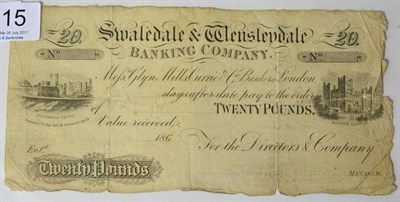 15
26 July 2017
& Banknotes
Swaledale & Wensleydale
BANKING COMPANY.
20. 20.
No No
Messrs Glyn, Mills, Currie & Co. Bankers, London
days after date pay to the order
of TWENTY POUNDS.
Value received
186
For the Directors & Company
Entd.
Twenty Pounds
MANAGER.